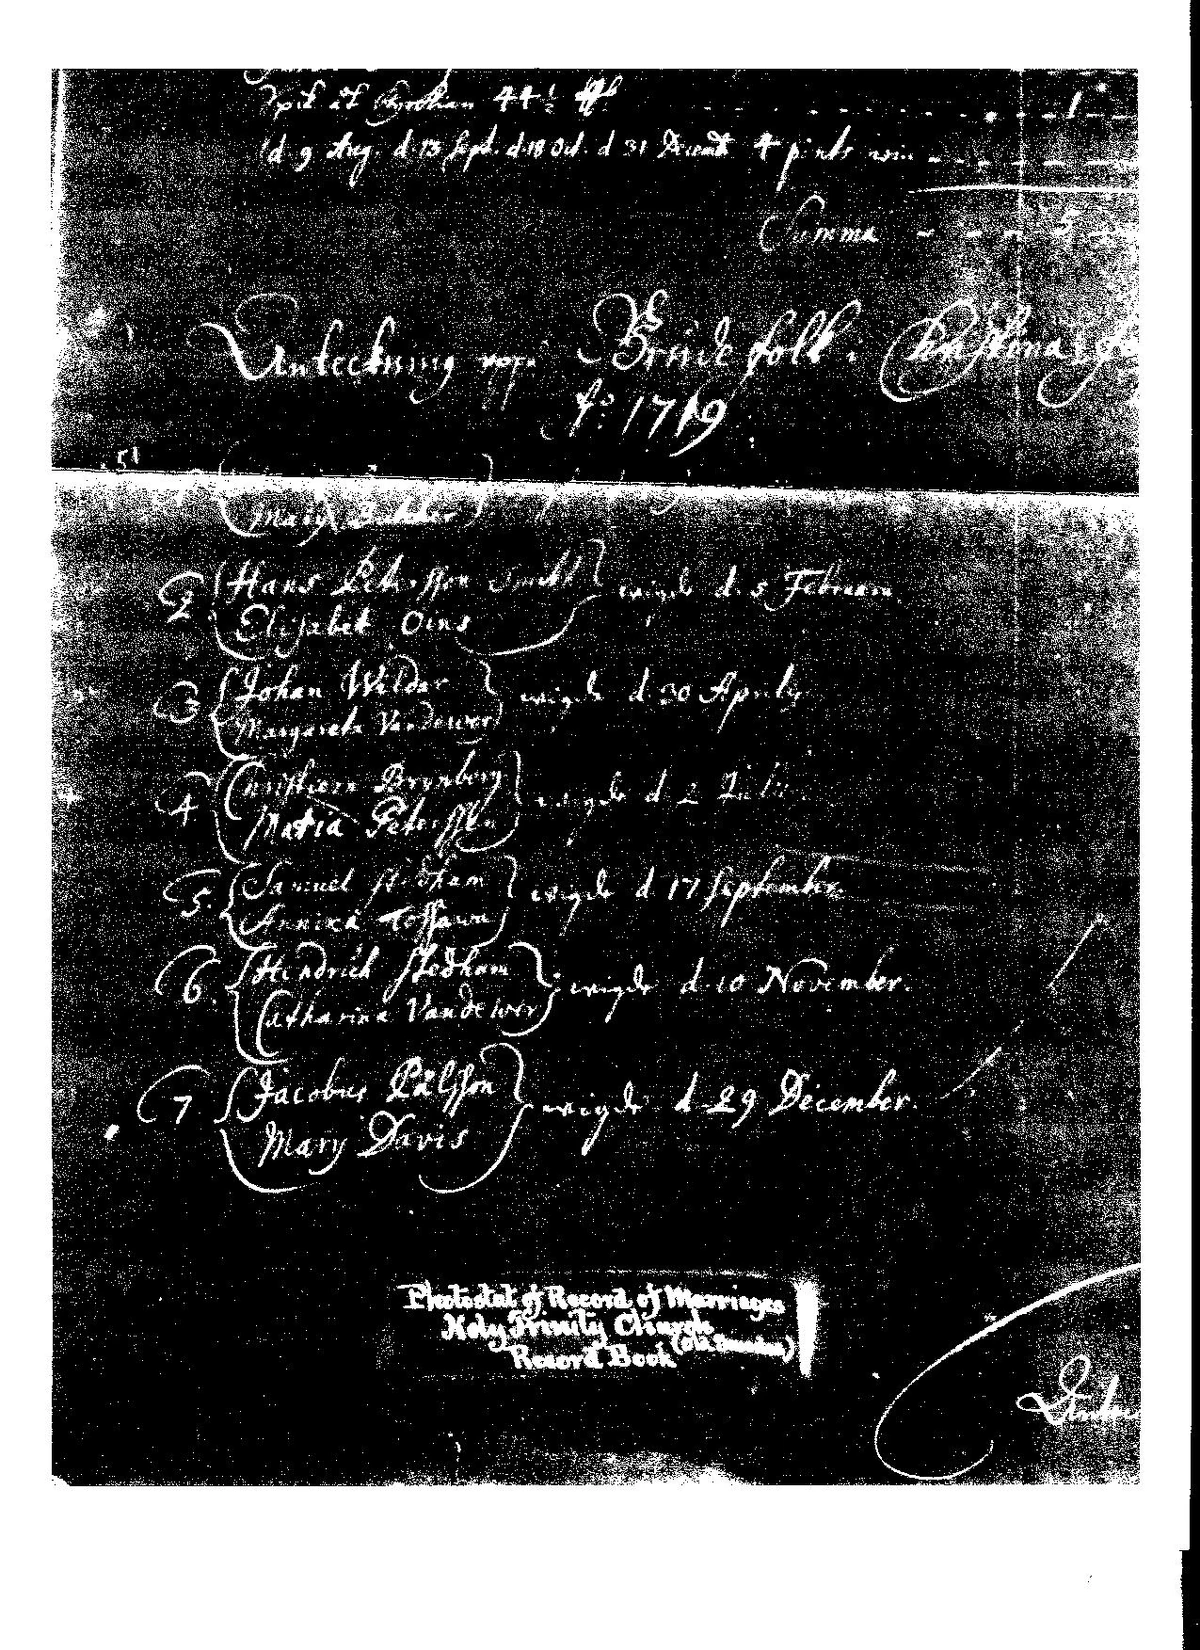 44½
d 9 Aug. d 13 Sept. d 18 Oct. d 31 Decemb 4 pints win
Summa - - - 5
Anteckning opå Brude folk. Christina
Ao: 1719
Mary
2. Hans Petersson Smith
Elisabet Oens
wigde d. 5 Februari
3 Johan Wilder
Margareta Vandewer
wigde d 30 Aprilis
4 Christiern Brynberg
Maria Petersson
wigde d 2 Julii
5. Samuel Stedham
Annika Tossawa
wigde d 17 September.
6. Hindrich Stedham
Catharina Vandewer
wigde d. 10 November.
7 Jacobus Pålsson
Mary Davis
wigde d 29 December.
Photostat of Record of Marriages
Holy Trinity Church
(Old Swedes)
Record Book